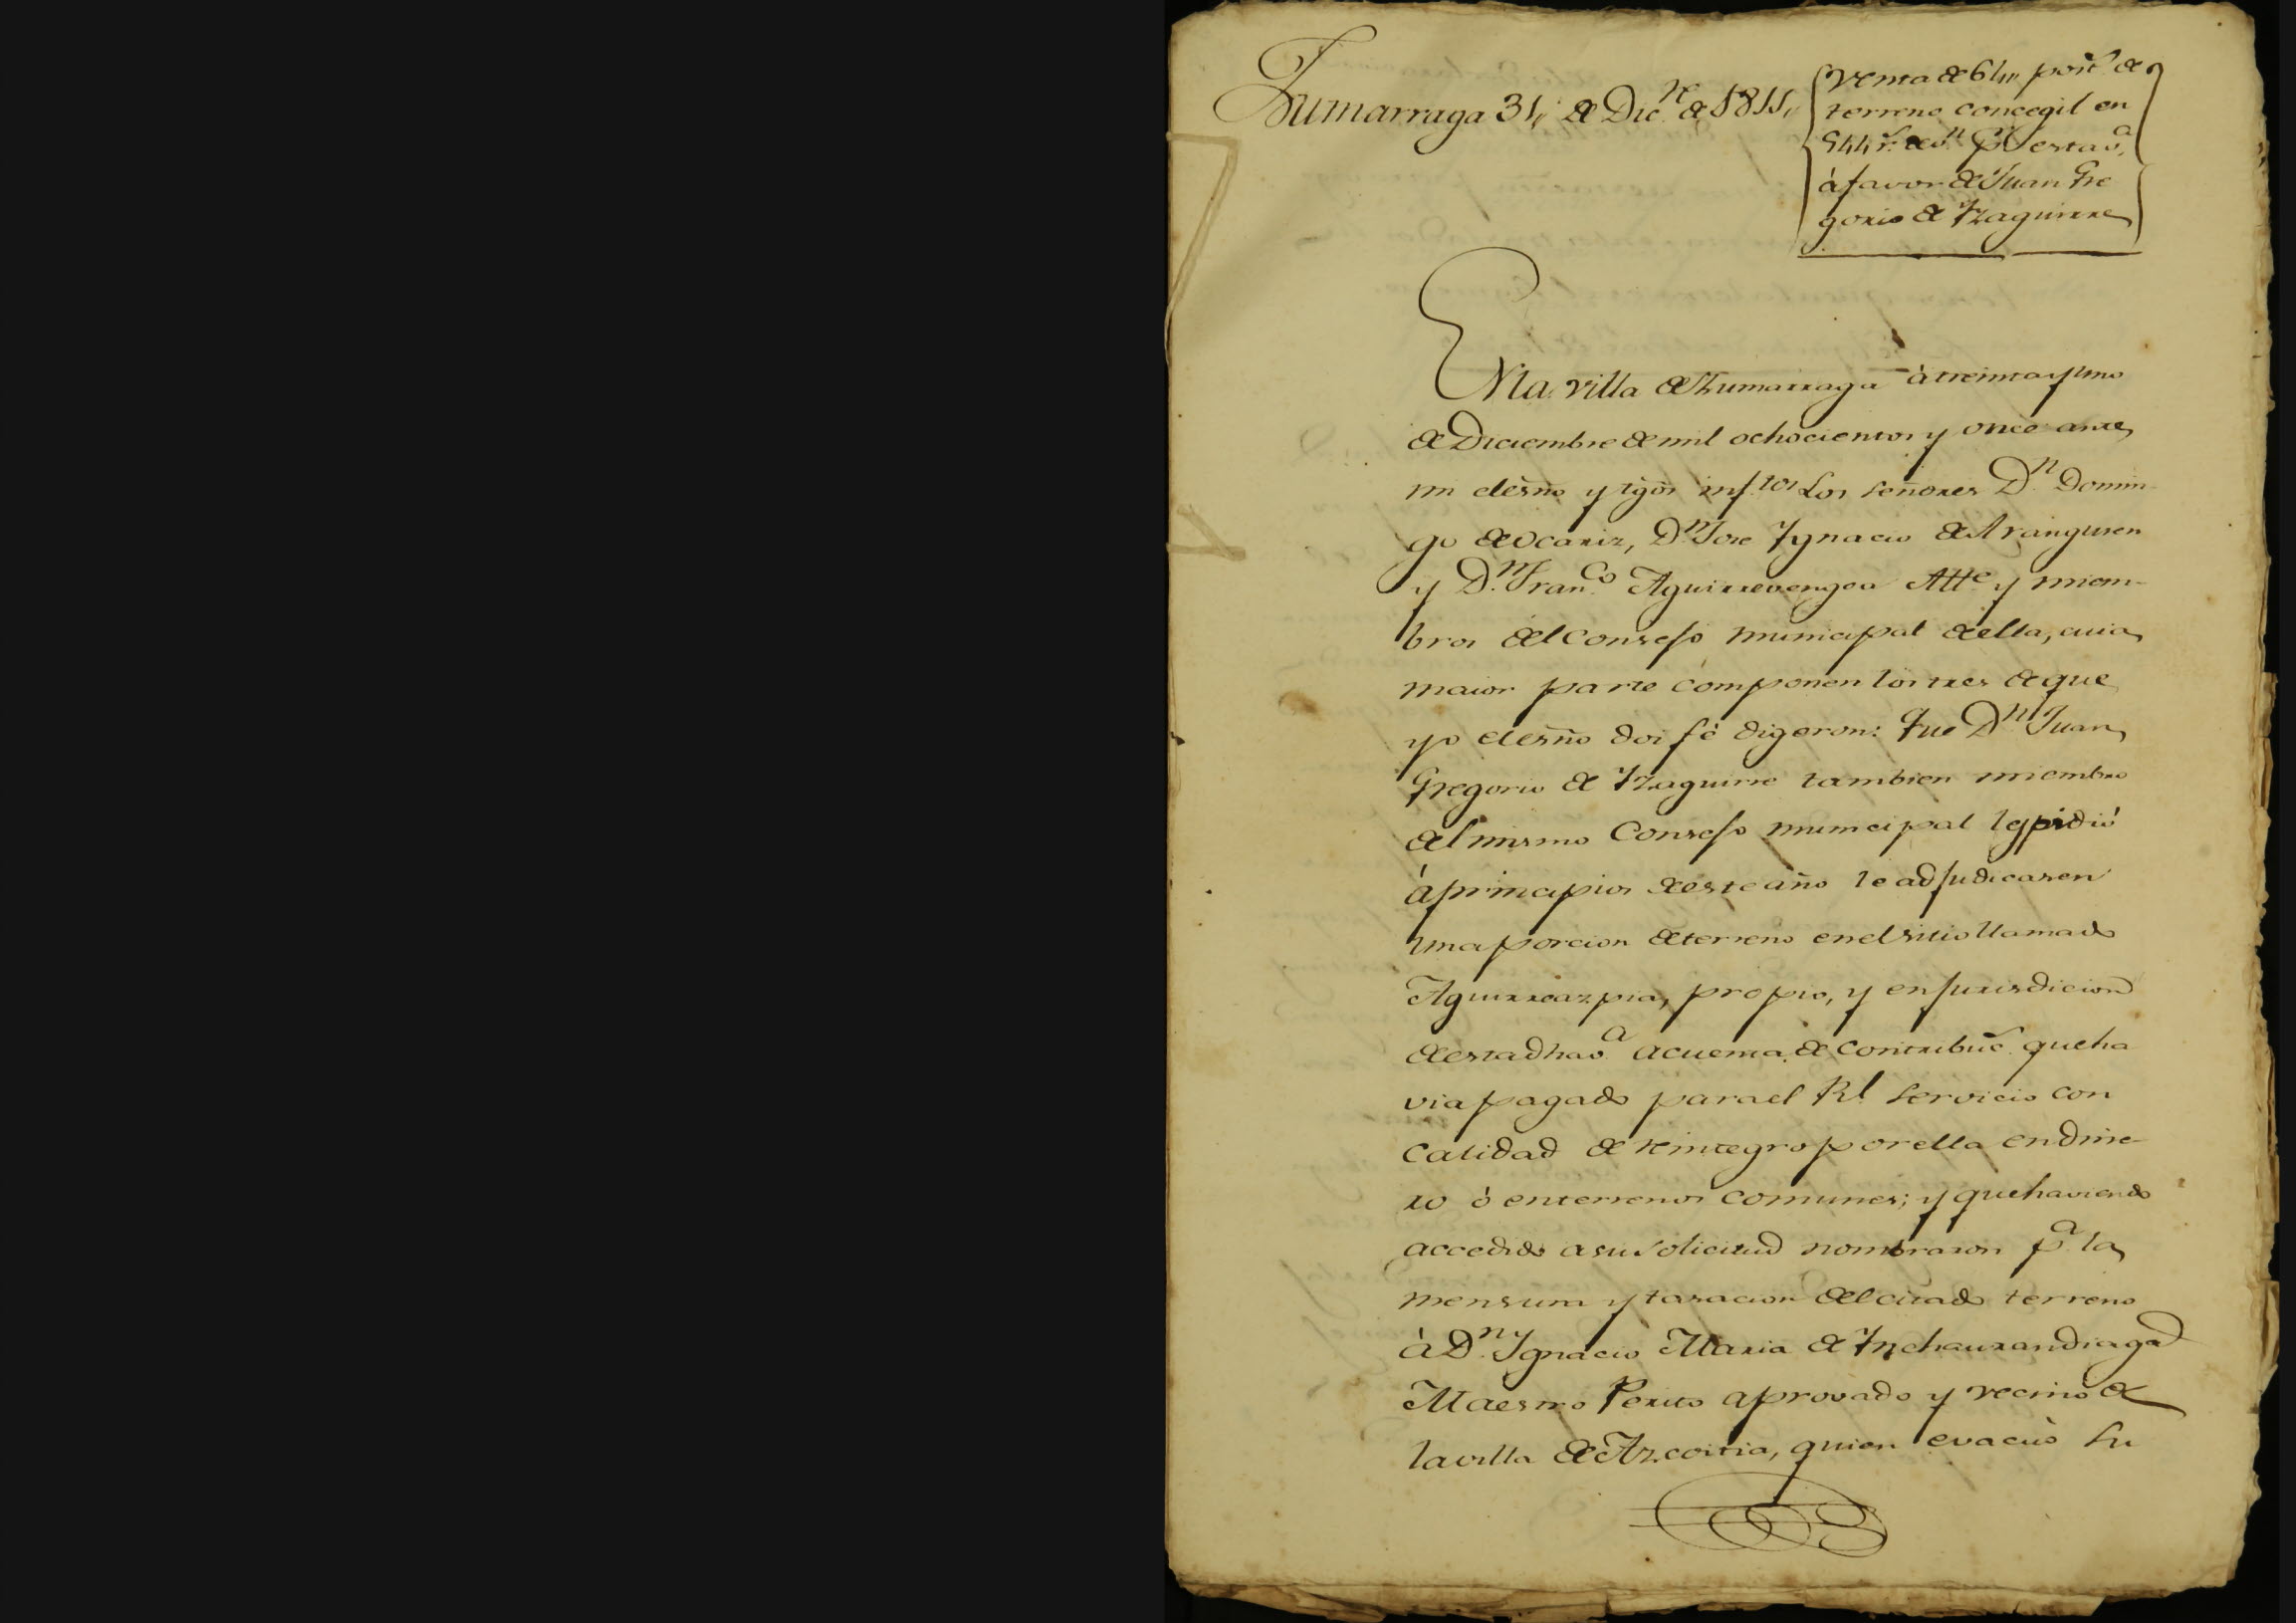 Zumarraga 31,, de Dic.re de 1811,,
Venta de 64,, post.s de
terreno concegil en
544 r.s de v.n p.r esta v.a
à favor de Juan Gre
gorio de Yzaguirre
En la villa de Zumarraga à treinta y uno
de Diciembre de mil ochocientos y once ante
mi el esño y tgos inf.tos Los señores D.n Domin-
go de Ocariz, D.n Jose Ygnacio de Aranguren
y D.n Fran.co Aguirrevengoa Alle y miem-
bros del Consejo municipal de ella, cuia
maior parte componen los tres de que
yo el esño doi fé digeron: Que D.n Juan
Gregorio de Yzaguirre tambien miembro
del mismo Consejo municipal les pidió
à principios de este año le adjudicasen
una porcion de terreno en el sitio llamado
Aguirreazpia, propio, y en jurisdicion
de esta dha v.a a cuenta de contribuc.s que ha
via pagado para el R.l servicio con
calidad de reintegro por ella en dine-
ro ò en terrenos comunes; y que haviendo
accedido a su solicitud nombraron p.a la
mensura y tasacion del citado terreno
à D.n Ygnacio Maria de Ynchaurandiaga
Maestro Perito aprovado y vecino de
la villa de Azcoitia, quien evacuò su